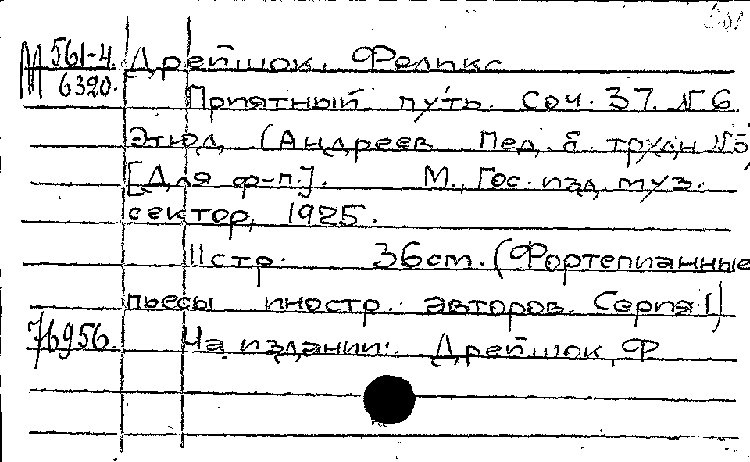 М 561-4 Дрейшок, Феликс
6320. Приятный путь. Соч. 37. №6.
Этюд, (Андреев. Пед. я. трудн №5)
[Для ф-п.]. М., Гос. изд. муз.
сектор, 1925.
11стр. 36см. (Фортепианные
пьесы иностр. авторов. Серия 1)
76956. На издании: Дрейшок, Ф